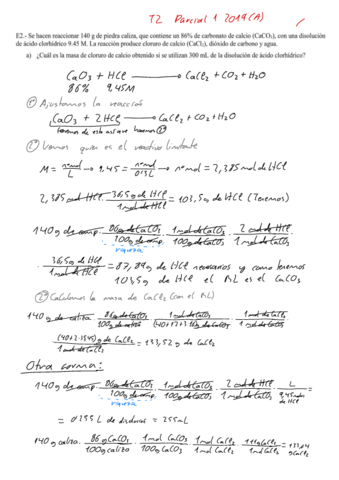 T2 Parcial 1 2019(A)
E2.- Se hacen reaccionar 140 g de piedra caliza, que contiene un 86% de carbonato de calcio (CaCO₃), con una disolución
de ácido clorhídrico 9.45 M. La reacción produce cloruro de calcio (CaCl₂), dióxido de carbono y agua.
a) ¿Cuál es la masa de cloruro de calcio obtenido si se utilizan 300 mL de la disolución de ácido clorhídrico?
CaO₃ + HCl ⟶ CaCl₂ + CO₂ + H₂O
86% 9,45M
① Ajustamos la reacción
CaO₃ + 2HCl ⟶ CaCl₂ + CO₂ + H₂O
② Vemos quien es el reactivo limitante
M = nºmol/L → 9,45 = nºmol/0,3L → nºmol = 2,835 mol de HCl
36,5g de HCl / 1 mol de HCl = 103,5g de HCl (Tenemos)
140g de comp · 86g de CaCO₃/100g de comp · 1 mol de CaCO₃/100g de CaCO₃ · 2 mol de HCl/1 mol de CaCO₃ ·
riqueza
· 36,5g de HCl/1 mol de HCl = 87,89g de HCl necesarios y como tenemos
103,5g de HCl el RL es el CaCO₃
③ Calculamos la masa de CaCl₂ (con el RL)
140g de caliza · 86g de CaCO₃/100g de caliza · 1 mol de CaCO₃ · 1 mol de CaCl₂/1 mol de CaCO₃ ·
CaCl₂ = 133,52g de CaCl₂
Otra forma:
140g de comp · 86g de CaCO₃/100g de comp · 1 mol de CaCO₃/100g de CaCO₃ · 2 mol de HCl/1 mol de CaCO₃ · L =
riqueza
= 0,255 L de disolución = 255mL
140g caliza · 86g CaCO₃/100g caliza · 1 mol CaCO₃/100g CaCO₃ · 1 mol CaCl₂/1 mol CaCO₃ · g CaCl₂